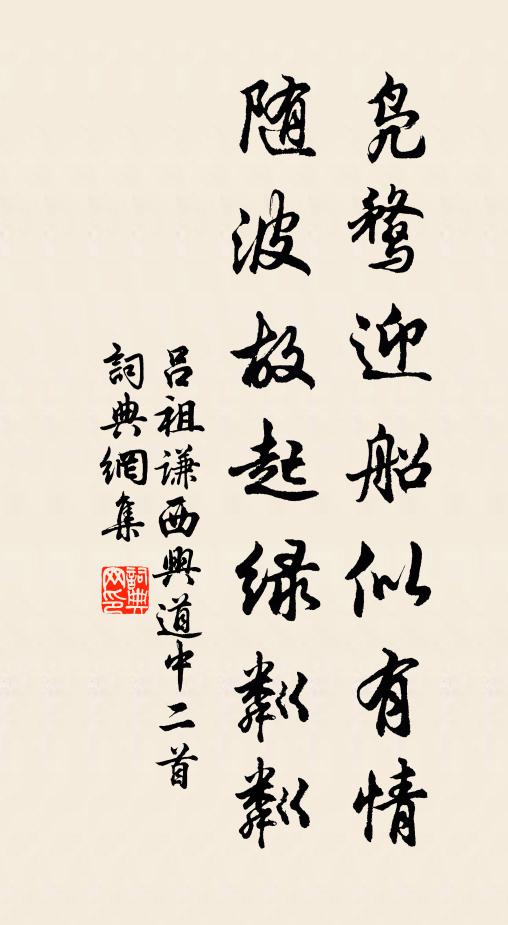 凫鶩迎船似有情
随波故起绿粼粼
吕祖谦西興道中二首
詞典網集
詞典网印